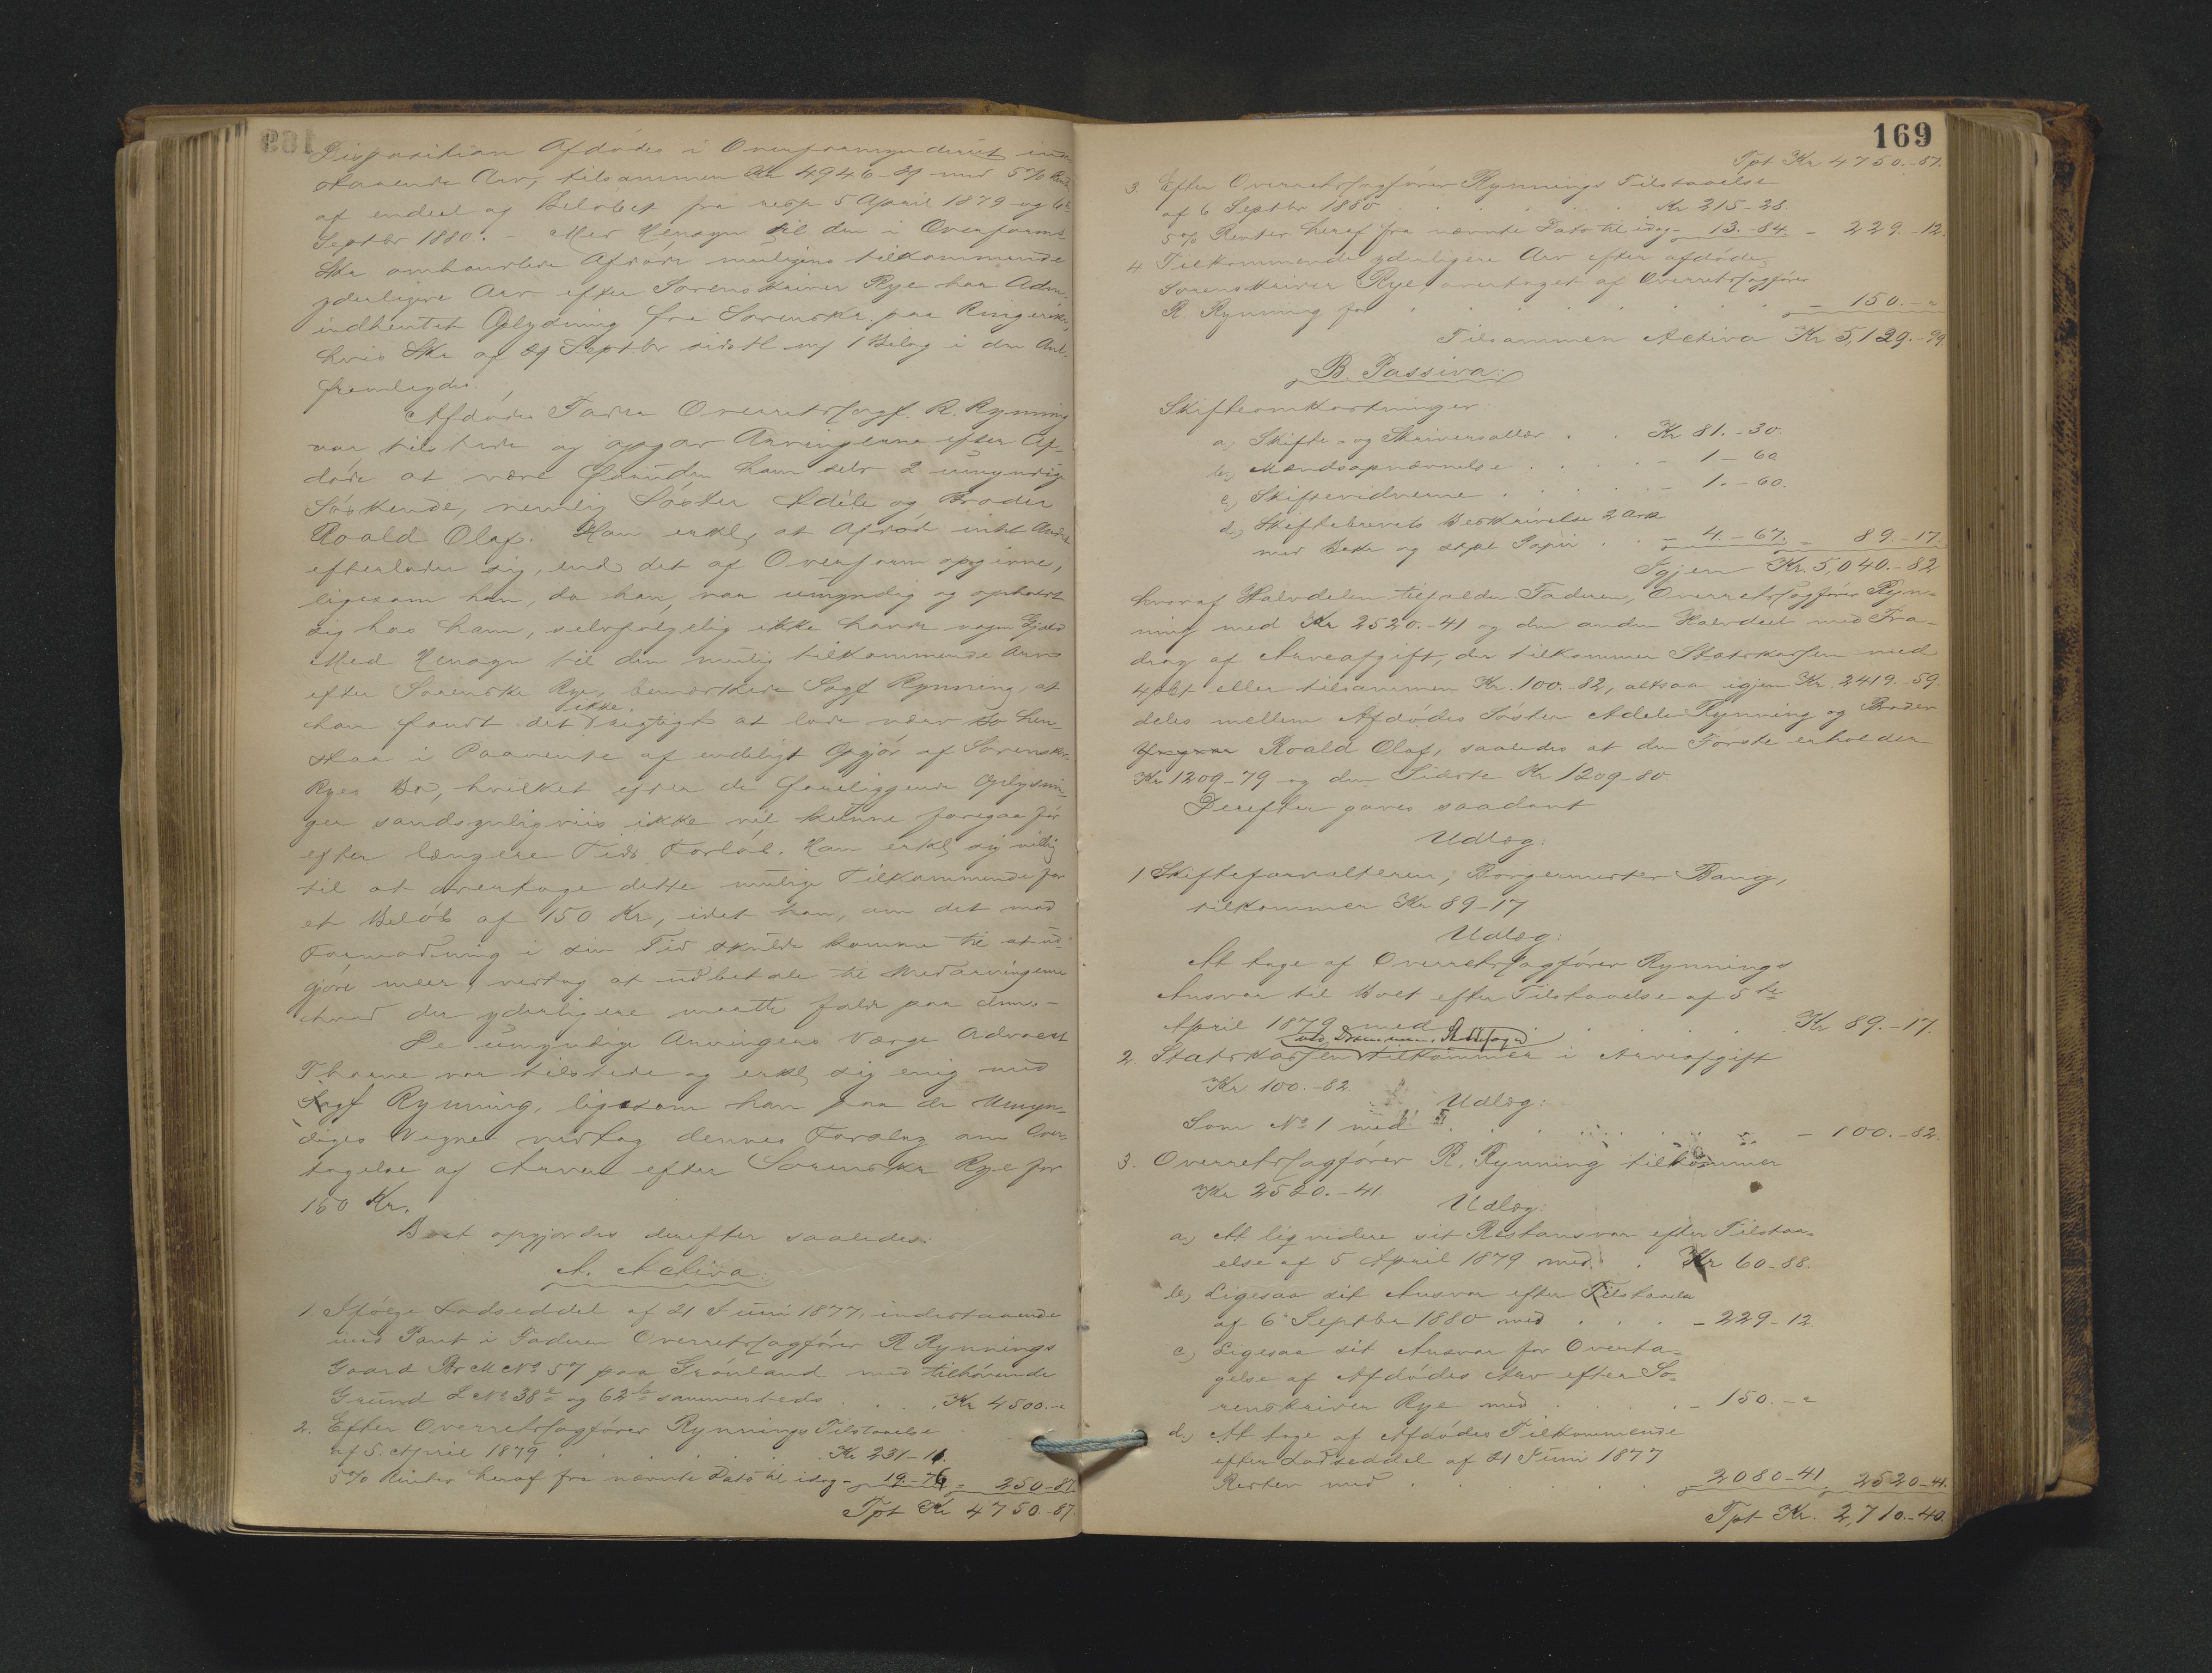 Disposition Afdødes i Overformynderiet inde
staaende Arv, tilsammen Kr 4946-39 med 5% Rente
af endeel af Beløbet fra resp 5 April 1879 og 6te
Septbr 1880. – Med Hensyn til den i Overforms
Skr omhandlede Afdøde muligens tilkommende
yderligere Arv efter Sorenskriver Rye har Adm.
indhentet Oplysning fra Sorenskr. paa Ringerike,
hvis Skr af 29 Septbr sidstl m/ 1 Bilag i den Anl.
fremlagdes.
Afdødes Fader Overretssagf. R. Rynning
var tilstede og opgav Arvingerne efter Af-
døde at være foruden ham selv 2 umyndige
Søskende, nemlig Søster Adéle og Broder
Roald Olaf. Han erkl, at Afdøde intet Andet
efterlader sig, end det af Overform opgivne,
ligesom han, da han var umyndig og opholdt
sig hos ham, selvfølgelig ikke havde nogen Gjæld
Med Hensyn til den mulig tilkommende Arv
efter Sorenskr Rye, bemærkede Sagf Rynning, at
han fandt det ikke rigtigt at lade nærv Bo hen-
staa i Paavente af endeligt Opgjør af Sorenskr.
Ryes Bo, hvilket efter de foreliggende Oplysnin-
ger sandsynligviis ikke vil kunne foregaa før
efter længere Tids Forløb. Han erkl sig villig
til at overtage dette mulige Tilkommende for
et Beløb af 150 Kr, idet han, om det mod
Formodning i sin Tid skulde komme til at ud-
gjøre meer, vedtog at udbetale til Medarvingerne
hvad der yderligere maatte falde paa dem. –
De umyndige Arvingers Værge Advocat
Thorne var tilstede og erkl sig enig med
Sagf Rynning, ligesom han paa de Umyn-
diges Vegne vedtog dennes Forslag om Over-
tagelse af Arven efter Sorenskr Rye for
150 Kr.
Boet opgjordes derefter saaledes:
A. Activa:
1. Ifølge Lodseddel af 21 Juni 1877, indestaaende
med Pant i Faderen Overretssagfører R Rynnings
Gaard Br M No 57 paa Grønland med tilhørende
Grund L No 38 e og 62 b sammesteds . . . . Kr 4500.-"
2. Efter Overretssagfører Rynnings Tilstaaelse
af 5. April 1879 . . . . . Kr 231-11.
5% Renter heraf fra nævnte Dato til idag - 19.-76 - 250-87.
Tpt Kr 4750.-87.
169
Tpt Kr 4750.-87.
3. Efter Overretssagfører Rynnings Tilstaaelse
af 6 Septbr 1880 . . . . . . Kr 215-28.
5% Renter heraf fra nævnte Dato til idag - 13.-84. - 229.-12.
4 Tilkommende yderligere Arv efter afdøde
Sorenskriver Rye, overtaget af Overretssagfører
R. Rynning for . . . . . . . . . . - 150.-"
Tilsammen Activa Kr 5,129.-99
B. Passiva:
Skifteomkostninger:
a, Skifte- og Skriversallær . . Kr 81.-30.
b, Mandsopnævnelse . . . . . - 1-60
c, Skiftevidnerne . . . . . . - 1.-60.
d, Skiftebrevets Beskrivelse 2 Ark
med Bekr og stpl Papir . . - 4.-67. - 89.-17.
Igjen Kr. 5,040.-82
hvoraf Halvdelen tilfalder Faderen, Overretssagfører Ryn-
ning med Kr 2520.-41 og den anden Halvdeel med Fra-
drag af Arveafgift, der tilkommer Statskassen med
4 pCt eller tilsammen Kr. 100.-82, altsaa igjen Kr. 2419.-59.
deles mellem Afdødes Søster Adele Rynning og Broder
Roald Olaf, saaledes at den Første erholder
Kr 1209-79 og den Sidste Kr 1209-80
Derefter gaves saadant
Udlæg:
1 Skifteforvalteren, Borgermester Bang,
tilkommer Kr 89-17
Udlæg:
At tage af Overretssagfører Rynnings
Ansvar til Boet efter Tilstaaelse af 5te
April 1879 med . . . . . . . Kr 89.-17.
ved Drammens Stadsfoged
2. Statskassen tilkommer i Arveafgift
Kr 100.-82.
Udlæg:
Som No 1 med . . . . . . . . . - 100.-82.
3. Overretssagfører R. Rynning tilkommer
Kr 2520.-41.
Udlæg:
a, At liqvidere sit Restansvar efter Tilstaa-
else af 5 April 1879 med . . Kr 60-88.
b, Ligesaa sit Ansvar efter Tilstaaelse
af 6 Septbr 1880 med . . . . - 229-12
c, Ligesaa sit Ansvar for Overta-
gelse af Afdødes Arv efter So-
renskriver Rye med . . . . . - 150.-"
d, At tage af Afdødes Tilkommende
efter Lodseddel af 21 Juni 1877
Resten med . . . . . . 2080-41. - 2520-41.
Tpt Kr. 2,710.-40.